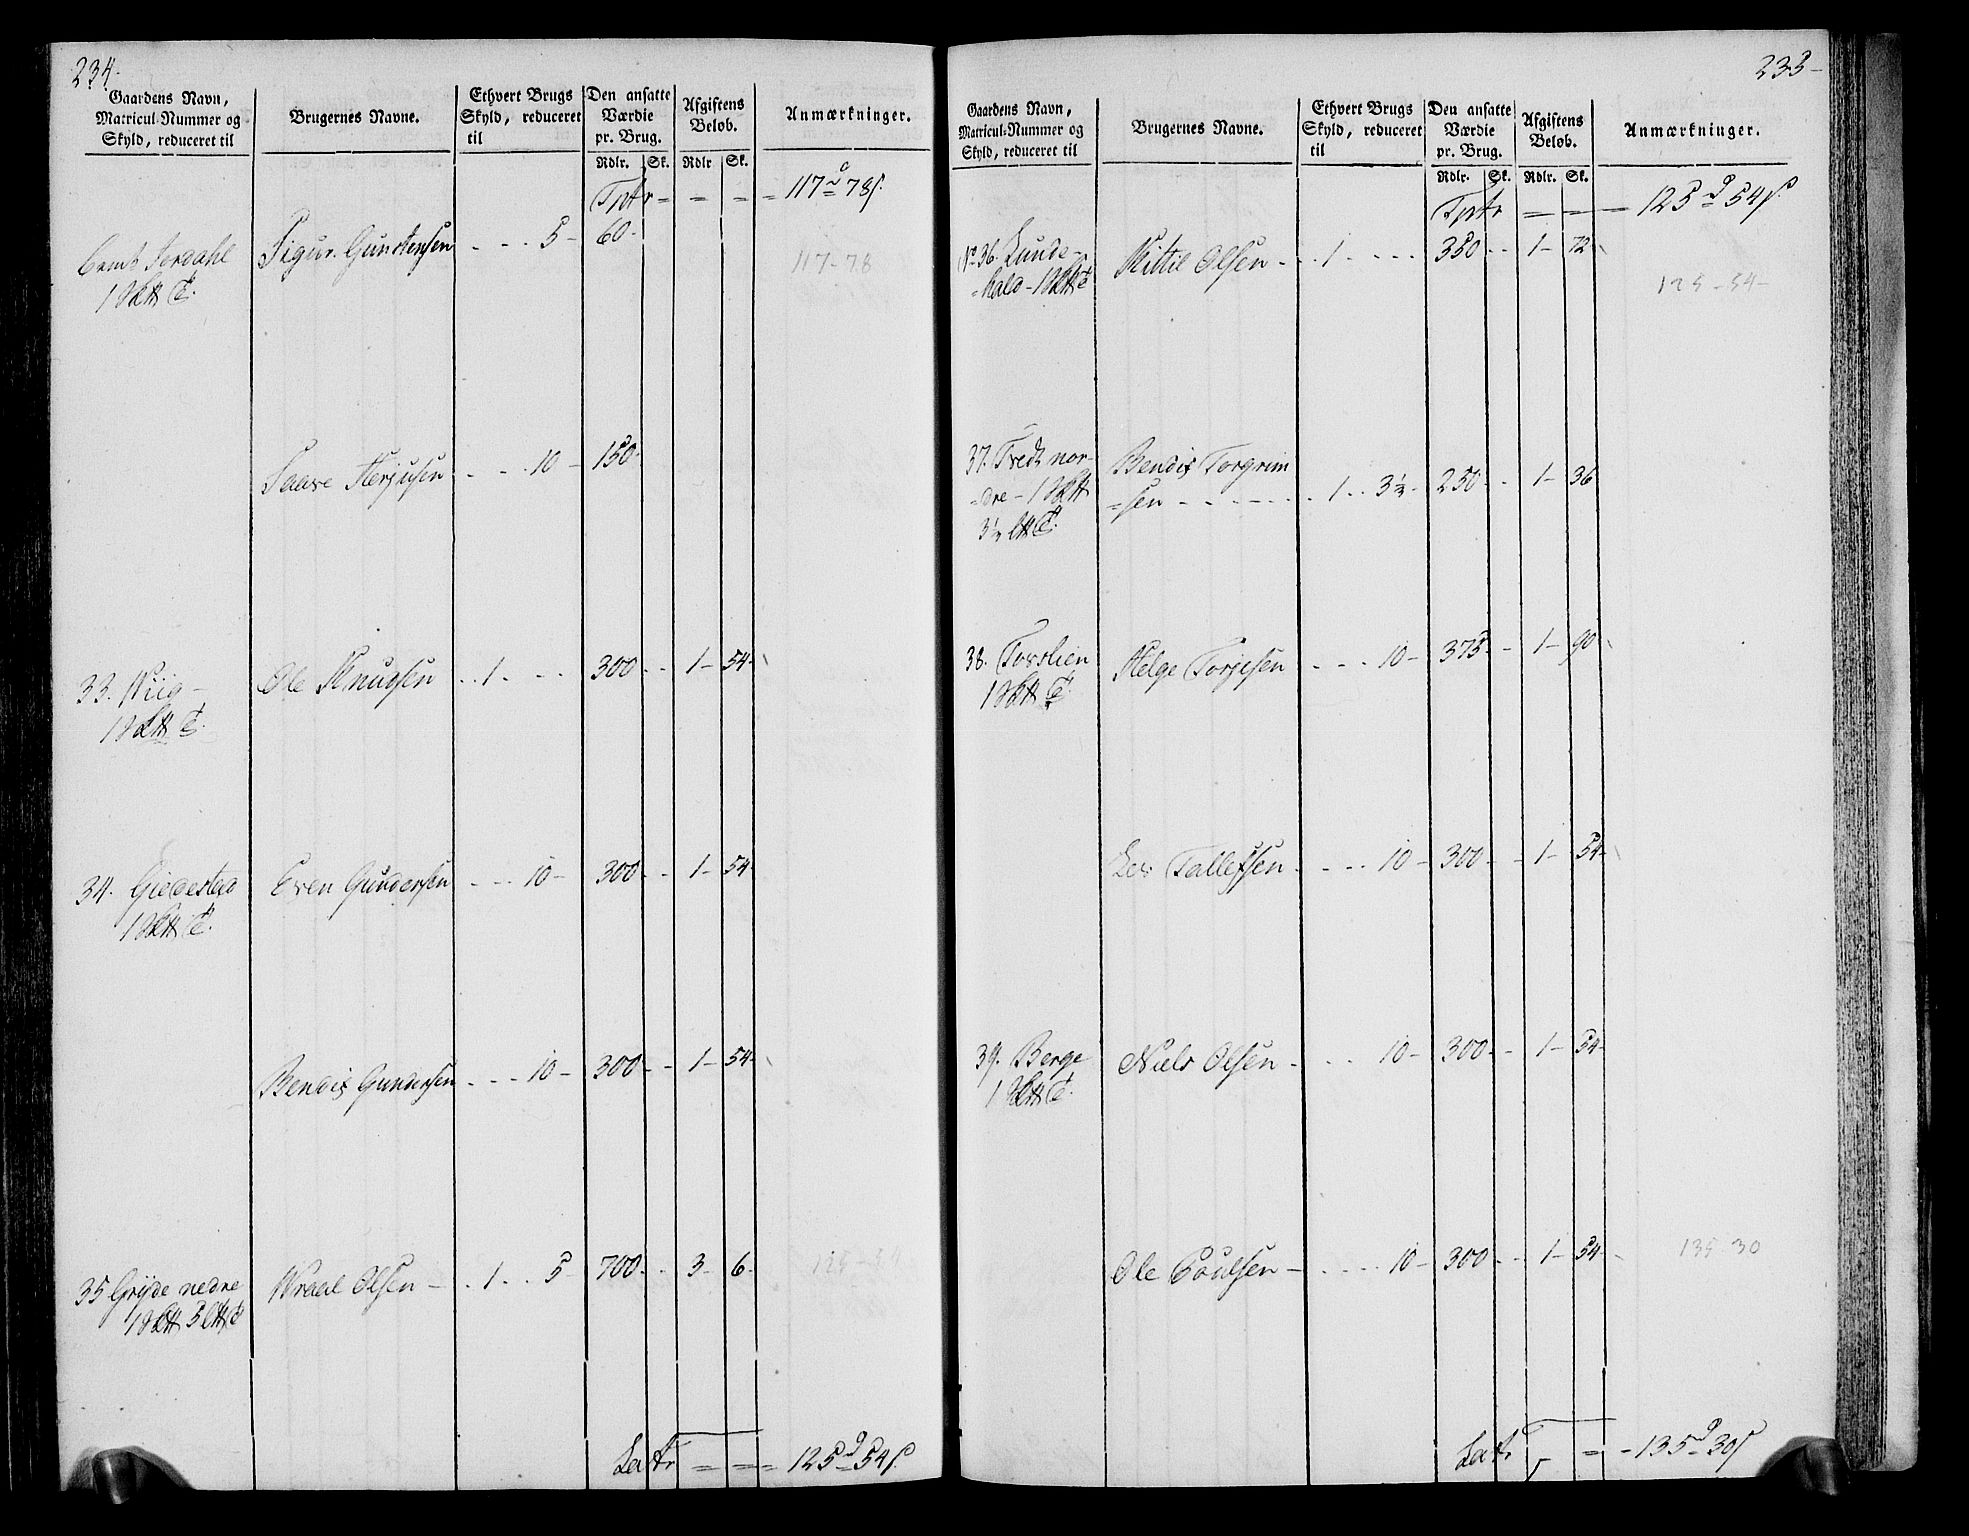 234.
Gaardens Navn,
Matricul-Nummer og
Skyld, reduceret til
Brugernes Navne.
Ethvert Brugs
Skyld, reduceret
til
Den ansatte
Værdie
pr. Brug.
Afgiftens
Beløb.
Anmærkninger.
Rdlr. Sk. Rdlr Sk.
Tptr = = = = 117 78
Jordahl Sigur Gunstensen - - - 5 - 60-
117-78
Saave Herjusen - - - 10 - 150-
33. Wiig - Ole Knudsen . . 1 . - - 300 - - 1 - 54-
34. Giedestad Even Gundersen - - - 10 - 300 - - 1 - 54-
Bendix Gundersen - - - 10 - 300 - - 1 - 54-
35 Grÿde nedre Wraal Olsen - . . 1 . . 5 - 700 - - 3 - 6-
125-54
Latr = = = 125 54
233-
Gaardens Navn,
Matricul-Nummer og
Skyld, reduceret til
Brugernes Navne.
Ethvert Brugs
Skyld, reduceret
til
Den ansatte
Værdie
pr. Brug.
Afgiftens
Beløb.
Anmærkninger.
Rdlr. Sk. Rdlr. Sk.
Tptr = = = 125 54
No 36. Lunde- Kittil Olsen - - . 1 . - - - 350 - - 1 - 72
=hald - 1
125-54-
37. Tvedt nor- Bendix Torgrim
=dre - 1 =sen - - - - - . 1 . . 3½ - 250 - - 1 - 36
3½
38. Torslien Helge Torjesen - - - 10 - 375 - - 1 - 90
Lev Tallefsen - - - 10 - 300 - - 1 - 54-
39. Berge Niels Olsen - - - - 10 - 300 - - 1 - 54-
Ole Poulsen - - - - - 10 - 300 - - 1 - 54-
135-30
Latr = = 135 30